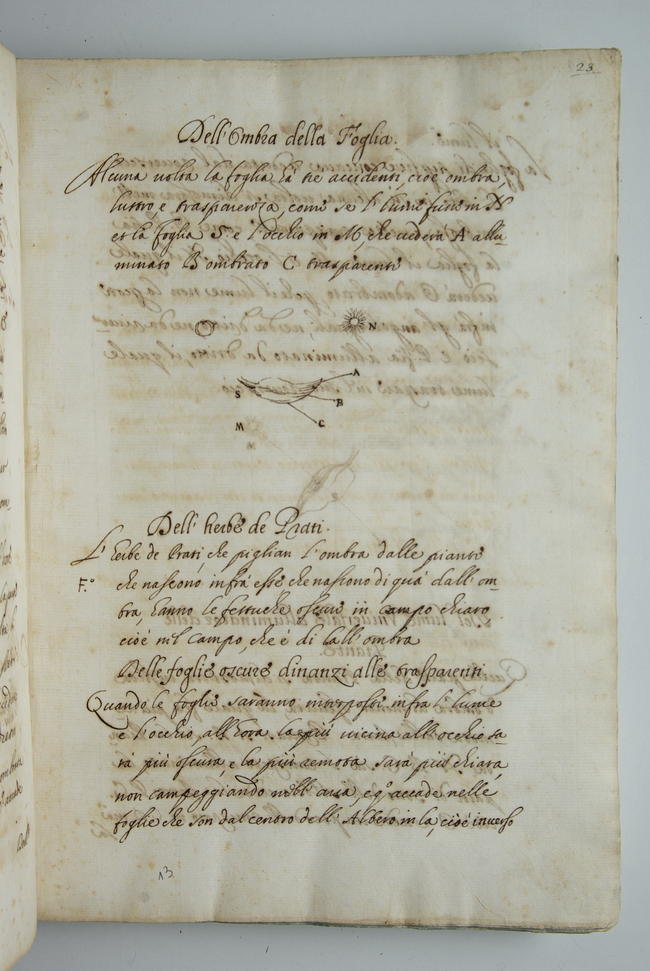 23
Dell'Ombra della Foglia.
Alcuna uolta la foglia hà tre accidenti, cioè ombra,
lustro, e trasparenza, come se l'lume fusse in N
et la foglia S. e l'occhio in M, che uederà A allu
minato B ombrato C trasparente
N
A
S
B
M
C
Dell'herbe de Prati.
L'herbe de Prati, che piglian l'ombra dalle piante
F.º
che nascono infrà esse che nascono di quà dall'om-
bra, hanno le festuche oscure in campo chiaro
cioè nel campo, che è di là all'ombra
Delle foglie oscure dinanzi alle trasparenti
Quando le foglie saranno interposte infra l'lume
e l'occhio, all'hora la più uicina all'occhio sa-
rà più oscura, e la più remota sarà più chiara,
non campeggiando nell'aria, e q.º accade nelle
foglie che son dal centro dell'Albero in là, cioè inuerso
13